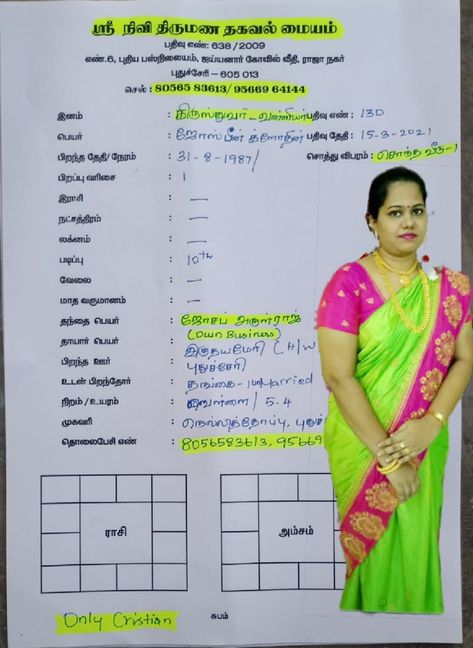 ஸ்ரீ நிவி திருமண தகவல் மையம்
பதிவு எண்: 638/2009
எண்.6, புதிய பஸ்நிலையம், ஐய்யனார் கோவில் வீதி, ராஜா நகர்
புதுச்சேரி – 605 013
செல் : 80565 83613/95669 64144
இனம் : கிருஸ்துவர் - வன்னியர் பதிவு எண் : 130
பெயர் : ஜோஸ்பின் பதிவு தேதி : 15-3-2021
பிறந்த தேதி/நேரம் : 31-8-1987/ சொத்து விபரம் : சொந்த வீடு-1
பிறப்பு வரிசை : 1
இராசி : —
நட்சத்திரம் : —
லக்னம் : —
படிப்பு : 10th
வேலை : —
மாத வருமானம் : —
தந்தை பெயர் : ஜோசப் அருள்ராஜ்
(Own Business)
தாயார் பெயர் : இருதயமேரி (H/W
பிறந்த ஊர் : புதுச்சேரி
உடன் பிறந்தோர் : தங்கை-1 Married
நிறம்/உயரம் : / 5.4
முகவரி : நெல்லித்தோப்பு, புதுச்
தொலைபேசி எண் : 8056583613, 95669
ராசி அம்சம்
Only Cristian சுபம்